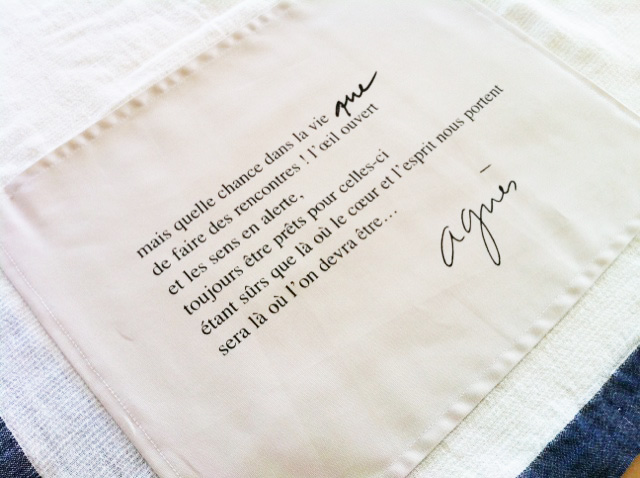 mais quelle chance dans la vie que
de faire des rencontres ! l'œil ouvert
et les sens en alerte,
toujours être prêts pour celles-ci
étant sûrs que là où le cœur et l'esprit nous portent
sera là où l'on devra être...
agnès